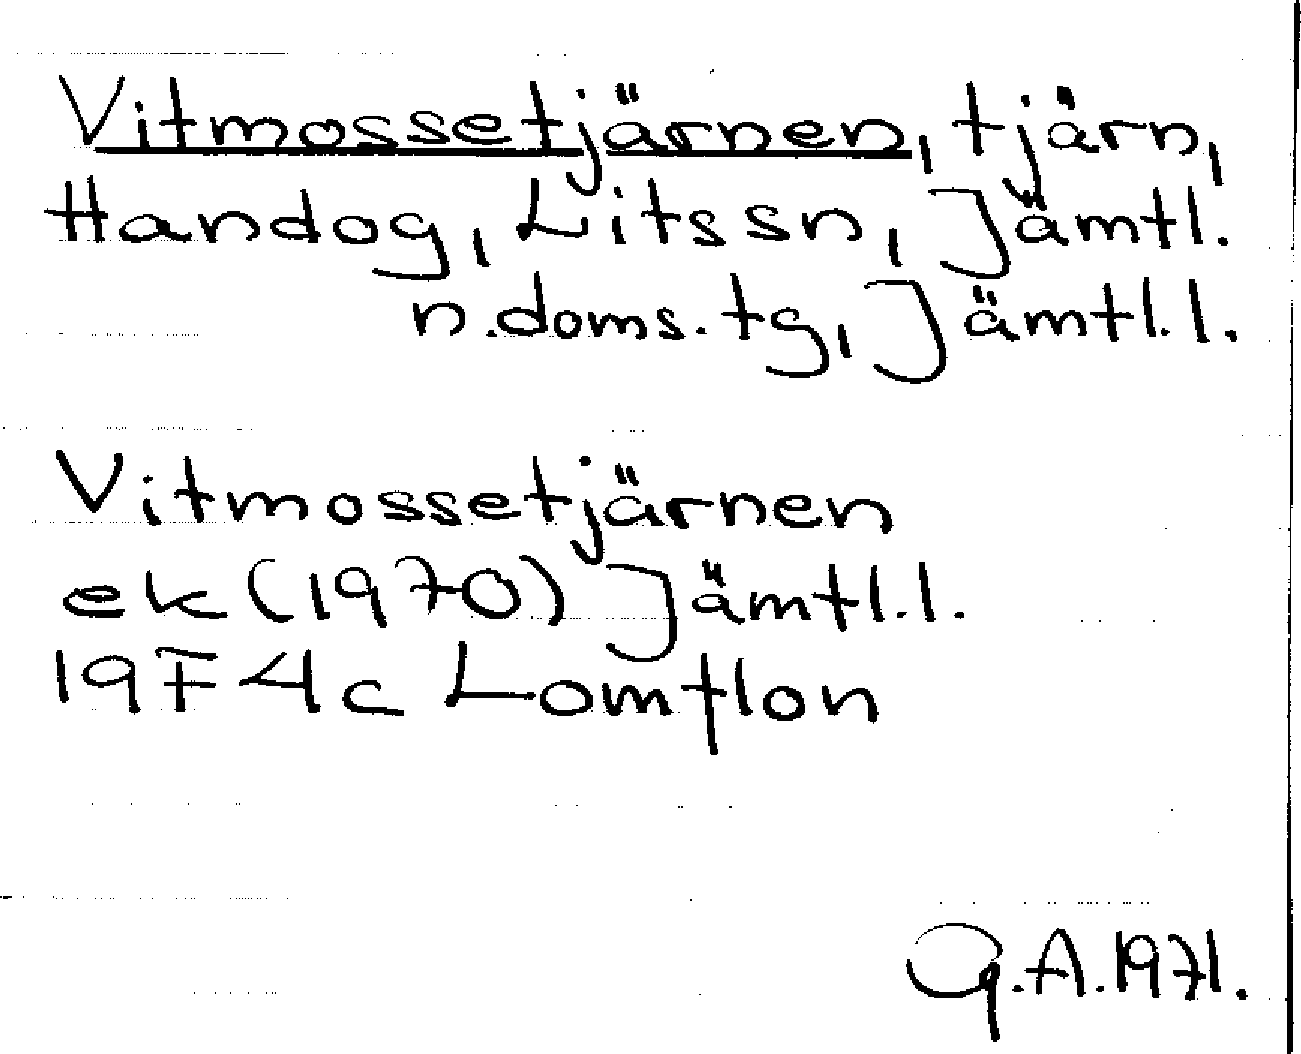 Vitmossetjärnen, tjärn,
Handog, Lits sn, Jämtl.
n.doms.tg, Jämtl.l.
Vitmossetjärnen
ek (1970) Jämtl.l.
19F4c Lomtlon
G.A.1971.